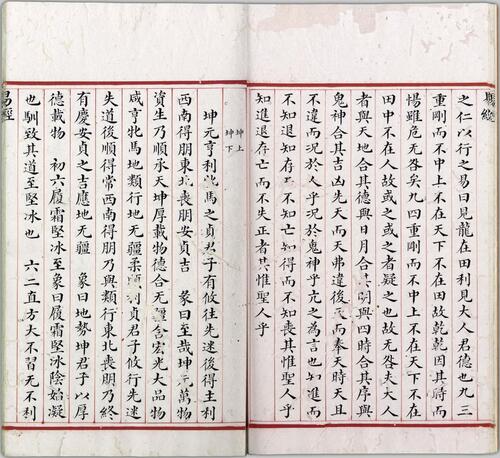 易經
之仁以行之易曰見龍在田利見大人君德也九三
重剛而不中上不在天下不在田故乾乾因其時而
惕雖危无咎矣九四重剛而不中上不在天下不在
田中不在人故或之或之者疑之也故无咎夫大人
者與天地合其德與日月合其明與四時合其序與
鬼神合其吉凶先天而天弗違後天而奉天時天且
不違而況於人乎況於鬼神乎亢之為言也知進而
不知退知存而不知亡知得而不知喪其惟聖人乎
知進退存亡而不失正者其惟聖人乎
坤上
坤下
坤元亨利牝馬之貞君子有攸往先迷後得主利
西南得朋東北喪朋安貞吉 彖曰至哉坤元萬物
資生乃順承天坤厚載物德合无疆含宏光大品物
咸亨牝馬地類行地无疆柔順利貞君子攸行先迷
失道後順得常西南得朋乃與類行東北喪朋乃終
有慶安貞之吉應地无疆 象曰地勢坤君子以厚
德載物 初六履霜堅冰至象曰履霜堅冰陰始凝
也馴致其道至堅冰也 六二直方大不習无不利
易經